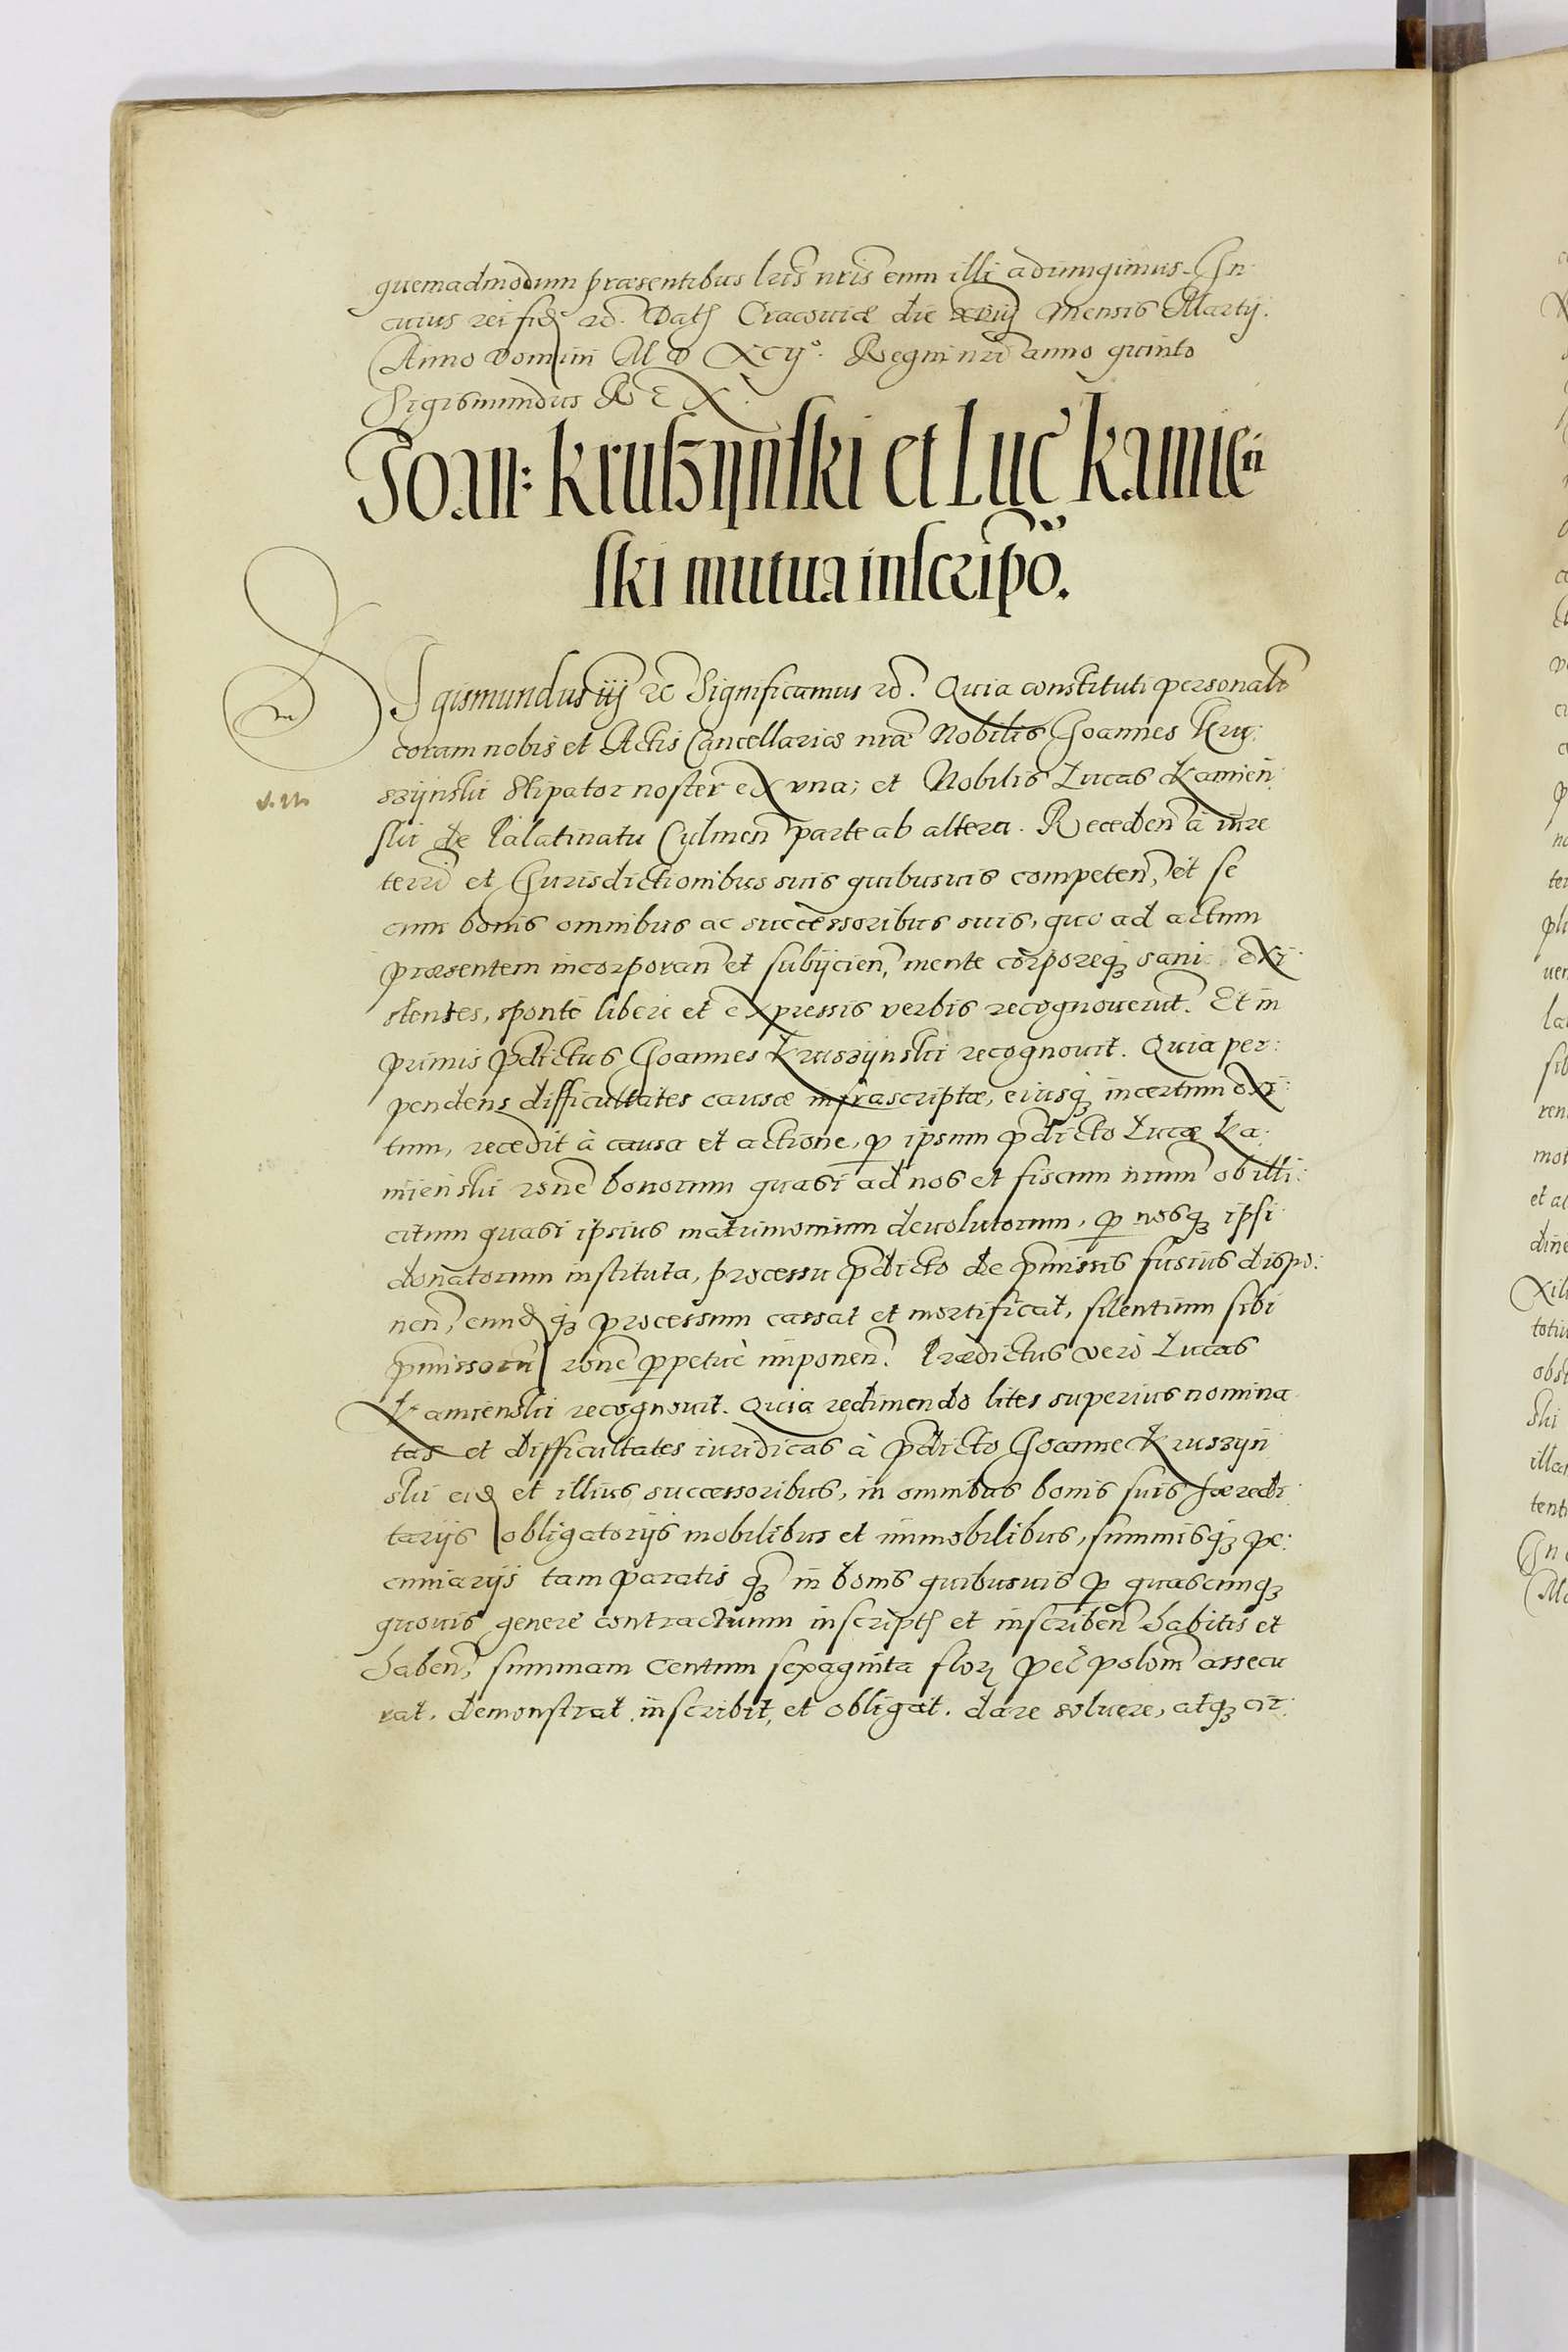 quemadmodum præsentibus lris nris eum illi adiungimus. In
cuius rei fid rc. Dat Cracoviæ die xviij Mensis Martij.
Anno Domini M D XCijº. Regni nri anno quinto
Sigismundus REX.
Joan: Kruszÿnski et Luc Kamień
ski mutua inscripõ.
Sigismundus iij rc Significamus rc. Quia constituti personalr
coram nobis et Actis Cancellariæ nræ Nobilis Joannes Kru:
szÿnski Stipator noster ex una; et Nobilis Lucas Kamień
ski de Palatinatu Culmen parte ab altera. Receden à iure
terri et Jurisdictionibus suis quibusuis competen, et se
cum bonis omnibus ac successoribus suis, quo ad actum
præsentem incorporan et subijcien, mente corporeq sani exi
stentes, sponte libere et expressis verbis recognouerut. Et in
primis pdictus Joannes Kruszÿnski recognouit. Quia per:
pendens difficultates causæ infrascriptæ, eiusq incertum exi
tum, recedit à causa et actione, p ipsum pdicto Lucæ Ka:
mienski rone bonorum quasi ad nos et fiscum nrum ob illi:
citum quasi ipsius matrimonium deuolutorum, p nosq ipsi
donatorum instituta, processu pdicto de pmissis fusius dispo:
nen, eundq processum cassat et mortificat, silentium sibi
pmissoru rone ppetuè imponen. Prædictus verò Lucas
Kamienski recognouit. Quia redimendo lites superius nomina
tas et difficultates iuridicas à pdicto Joanne Kruszÿn
ski eid et illius successoribus, in omnibus bonis suis hæredi
tarijs obligatorijs mobilibus et immobilibus, summisq pe:
cuniarijs tam paratis q in bonis quibusuis p quascunq
quouis genere contractuum inscript et inscriben habitis et
haben, summam Centum sexaginta flor pec polon assecu
rat, demonstrat inscribit, et obligat. dare soluere, atq cir: